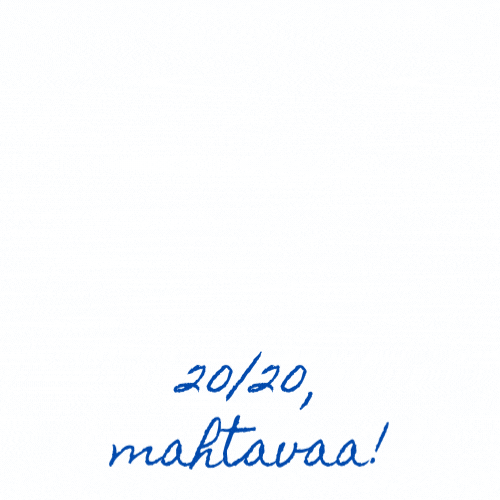 20/20,
mahtavaa!